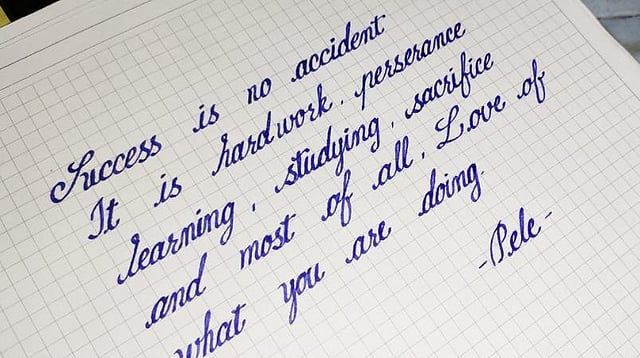 Success is no accident
It is hardwork. perserance
learning, studying, sacrifice
and most of all, Love of
what you are doing.
-Pele-